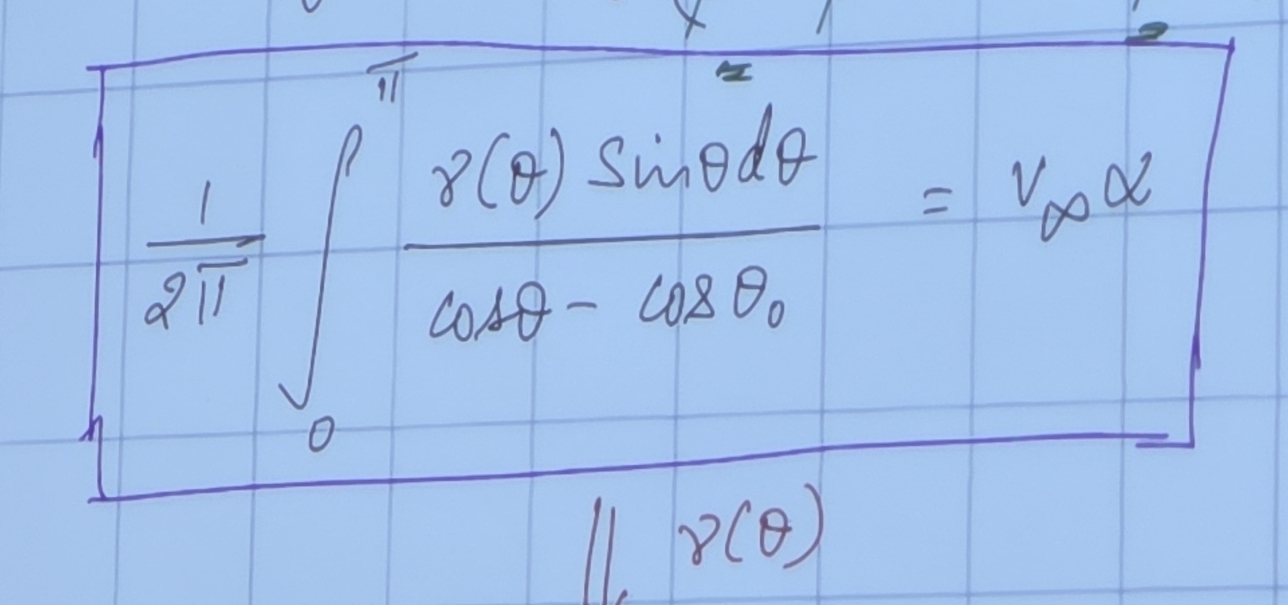 1/2π ∫₀^π γ(θ) sinθdθ / cosθ - cosθ₀ = V∞α
γ(θ)